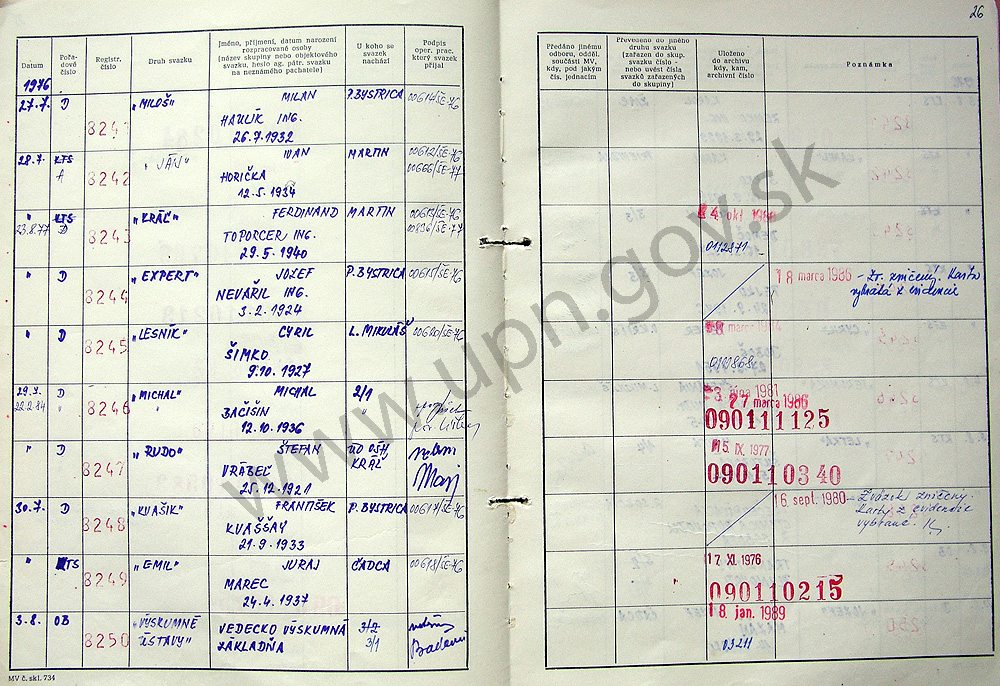 26
Datum
Pořadové číslo
Registr. číslo
Druh svazku
Jméno, příjmení, datum narození
rozpracované osoby
(název skupiny nebo objektového
svazku, heslo ag. pátr. svazku
na neznámého pachatele)
U koho se
svazek
nachází
Podpis
oper. prac.
který svazek
přijal
Předáno jinému
odboru, odděl.
součásti MV,
kdy, pod jakým
čís. jednacím
Převedeno do jiného
druhu svazku
(zařazen do skup.
svazku číslo -
nebo uvést čísla
svazků zařazených
do skupiny)
Uloženo
do archivu
kdy, kam,
archivní číslo
Poznámka
1976
27.7. D 8241 „MILOŠ" MILAN P. BYSTRICA 00614/ŠE-76
HAULÍK ING.
26.7.1932
28.7. KTS 8242 „JÁN" IVAN MARTIN 00612/ŠE-76
A HORIČKA 00666/ŠE-77
12.5.1934
" KTS 8243 „KRÁĽ" FERDINAND MARTIN 00613/ŠE-76
23.8.77 D TOPORCER ING. 00896/ŠE-77
29.5.1940
4. okt. 1980
01/2871
" D 8244 „EXPERT" JOZEF P. BYSTRICA 00615/ŠE-76
NEVAŘIL ING.
3.2.1924
18 marca 1986 - Zv. zničený. Karta
vybratá z evidencie
" D 8245 „LESNÍK" CYRIL L. MIKULÁŠ 00620/ŠE-76
ŠIMKO
9.10.1927
D 8246 „MICHAL" MICHAL 2/1
22.2.84 " BAČIŠIN "
12.10.1936
3. října 1981
27 marca 1986
090111125
" D 8247 „RUDO" ŠTEFAN
VRÁBEĽ KRÁĽ
25.12.1921
15. IX. 1977
090110340
30.7. D 8248 „KVAŠIK" FRANTIŠEK P. BYSTRICA 00617/ŠE-76
KVAŠŠAY
21.9.1933
16. sept. 1980 - Zväzok zničený.
Karty z evidencie
vybrané.
" KTS 8249 „EMIL" JURAJ ČADCA 00618/ŠE-76
MAREC
24.4.1937
17. XI. 1976
090110215
3.8. OB 8250 „VÝSKUMNÉ VEDECKO VÝSKUMNÁ 3/2
ÚSTAVY" ZÁKLADŇA 3/1
18. jan. 1989
03211
MV č. skl. 734
www.upn.gov.sk